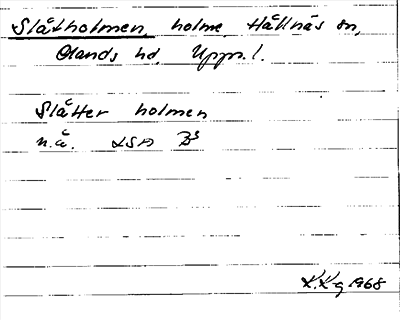 Slåtholmen holme Hållnäs sn,
Olands hd. Upps.l.
Slåtter holmen
n.å. LSA B³
K.Kg 1968